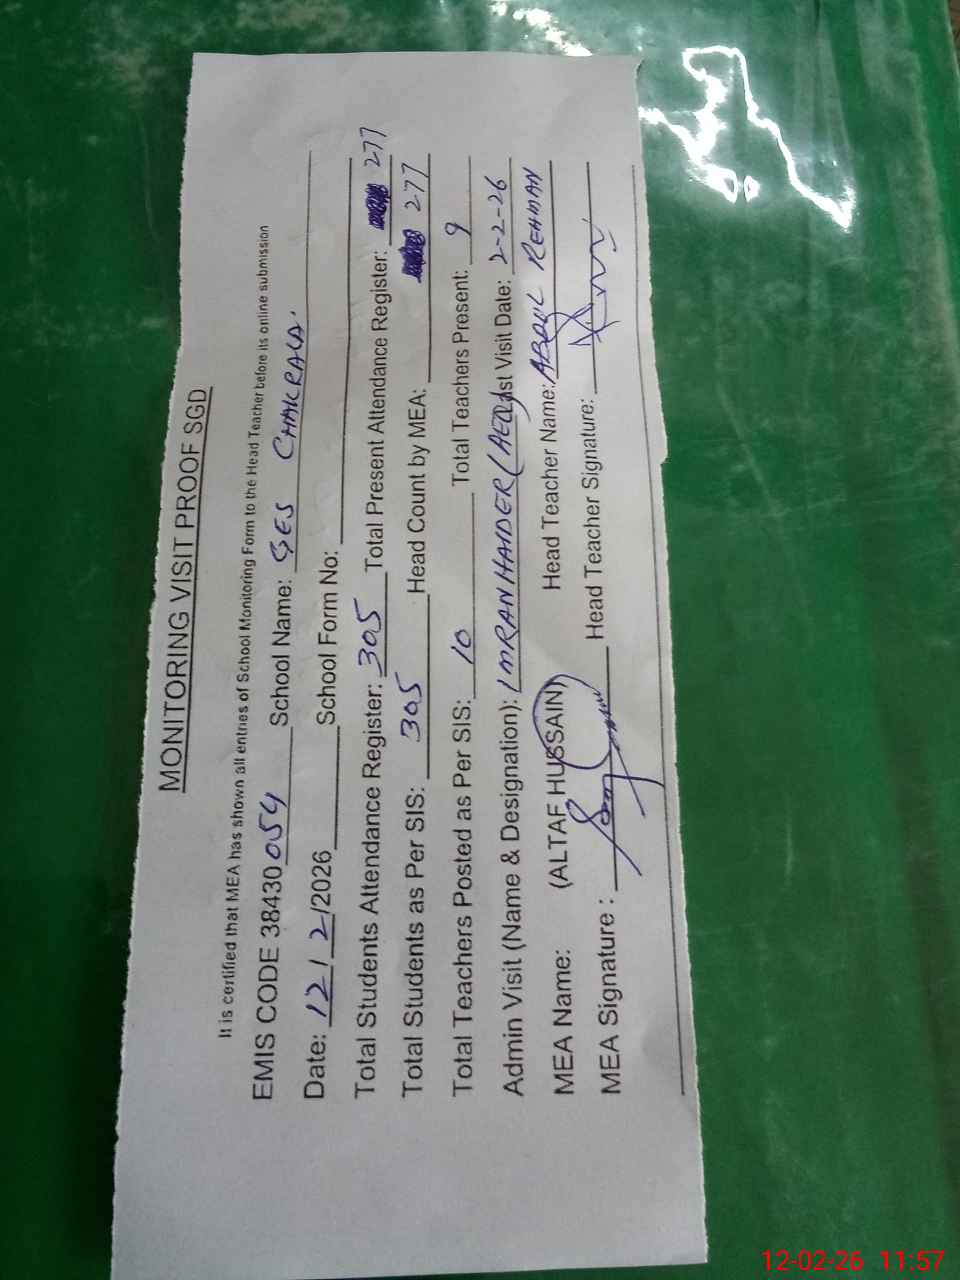 MONITORING VISIT PROOF SGD
It is certified that MEA has shown all entries of School Monitoring Form to the Head Teacher before its online submission
EMIS CODE 38430054 School Name: GES CHAKRALA.
Date: 12/2/2026 School Form No:
Total Students Attendance Register: 305 Total Present Attendance Register: 277
Total Students as Per SIS: 305 Head Count by MEA: 277
Total Teachers Posted as Per SIS: 10 Total Teachers Present: 9
Admin Visit (Name & Designation): IMRAN HAIDER (AEO) Last Visit Date: 2-2-26
MEA Name: (ALTAF HUSSAIN) Head Teacher Name: ABDUL REHMAN
MEA Signature : Head Teacher Signature:
12-02-26 11:57